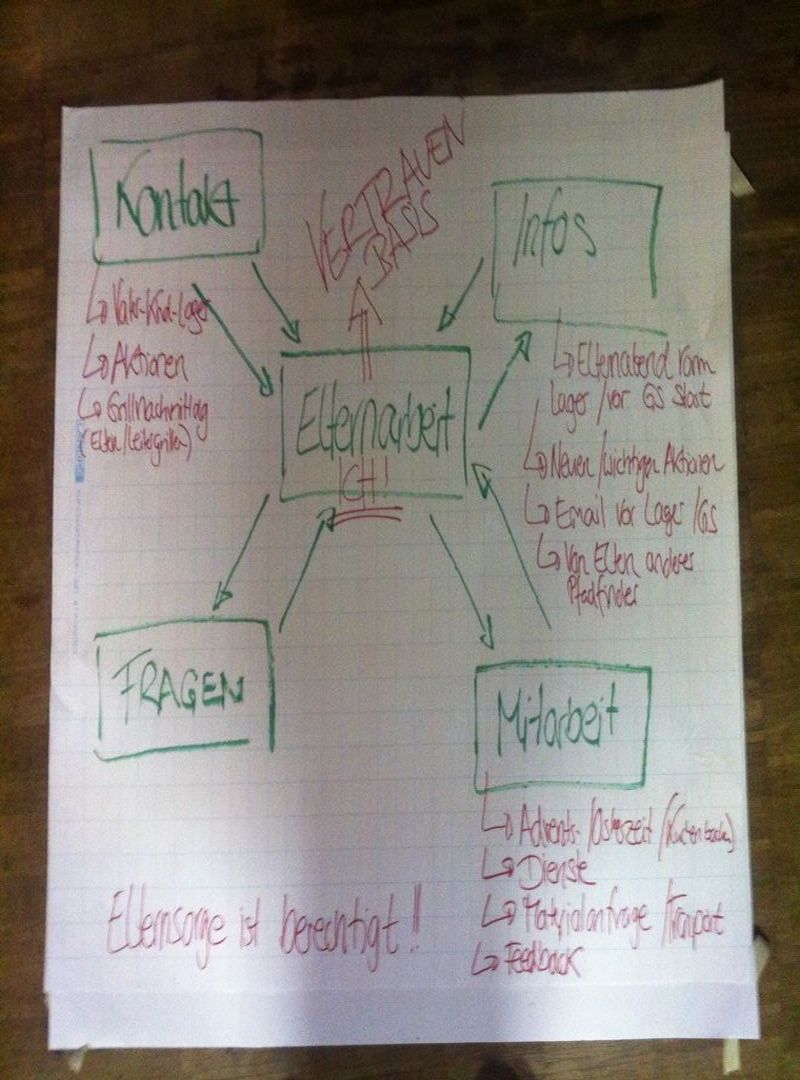 Kontakt
↳ Vater-Kind-Lager
↳ Aktionen
↳ Grillnachmittag
(Eltern/Leitergrillen)
VERTRAUEN
BASIS
Infos
↳ Elternabend vorm
Lager / vor GS Start
↳ Neuen / wichtigen Aktionen
↳ Email vor Lager / GS
↳ Von Eltern anderer
Pfadfinder
Elternarbeit
ICH!
FRAGEN
Mitarbeit
↳ Advents- / Osterzeit (Kuchenbacken)
↳ Dienste
↳ Materialanfrage / Transport
↳ Feedback
Elternsorge ist berechtigt!!